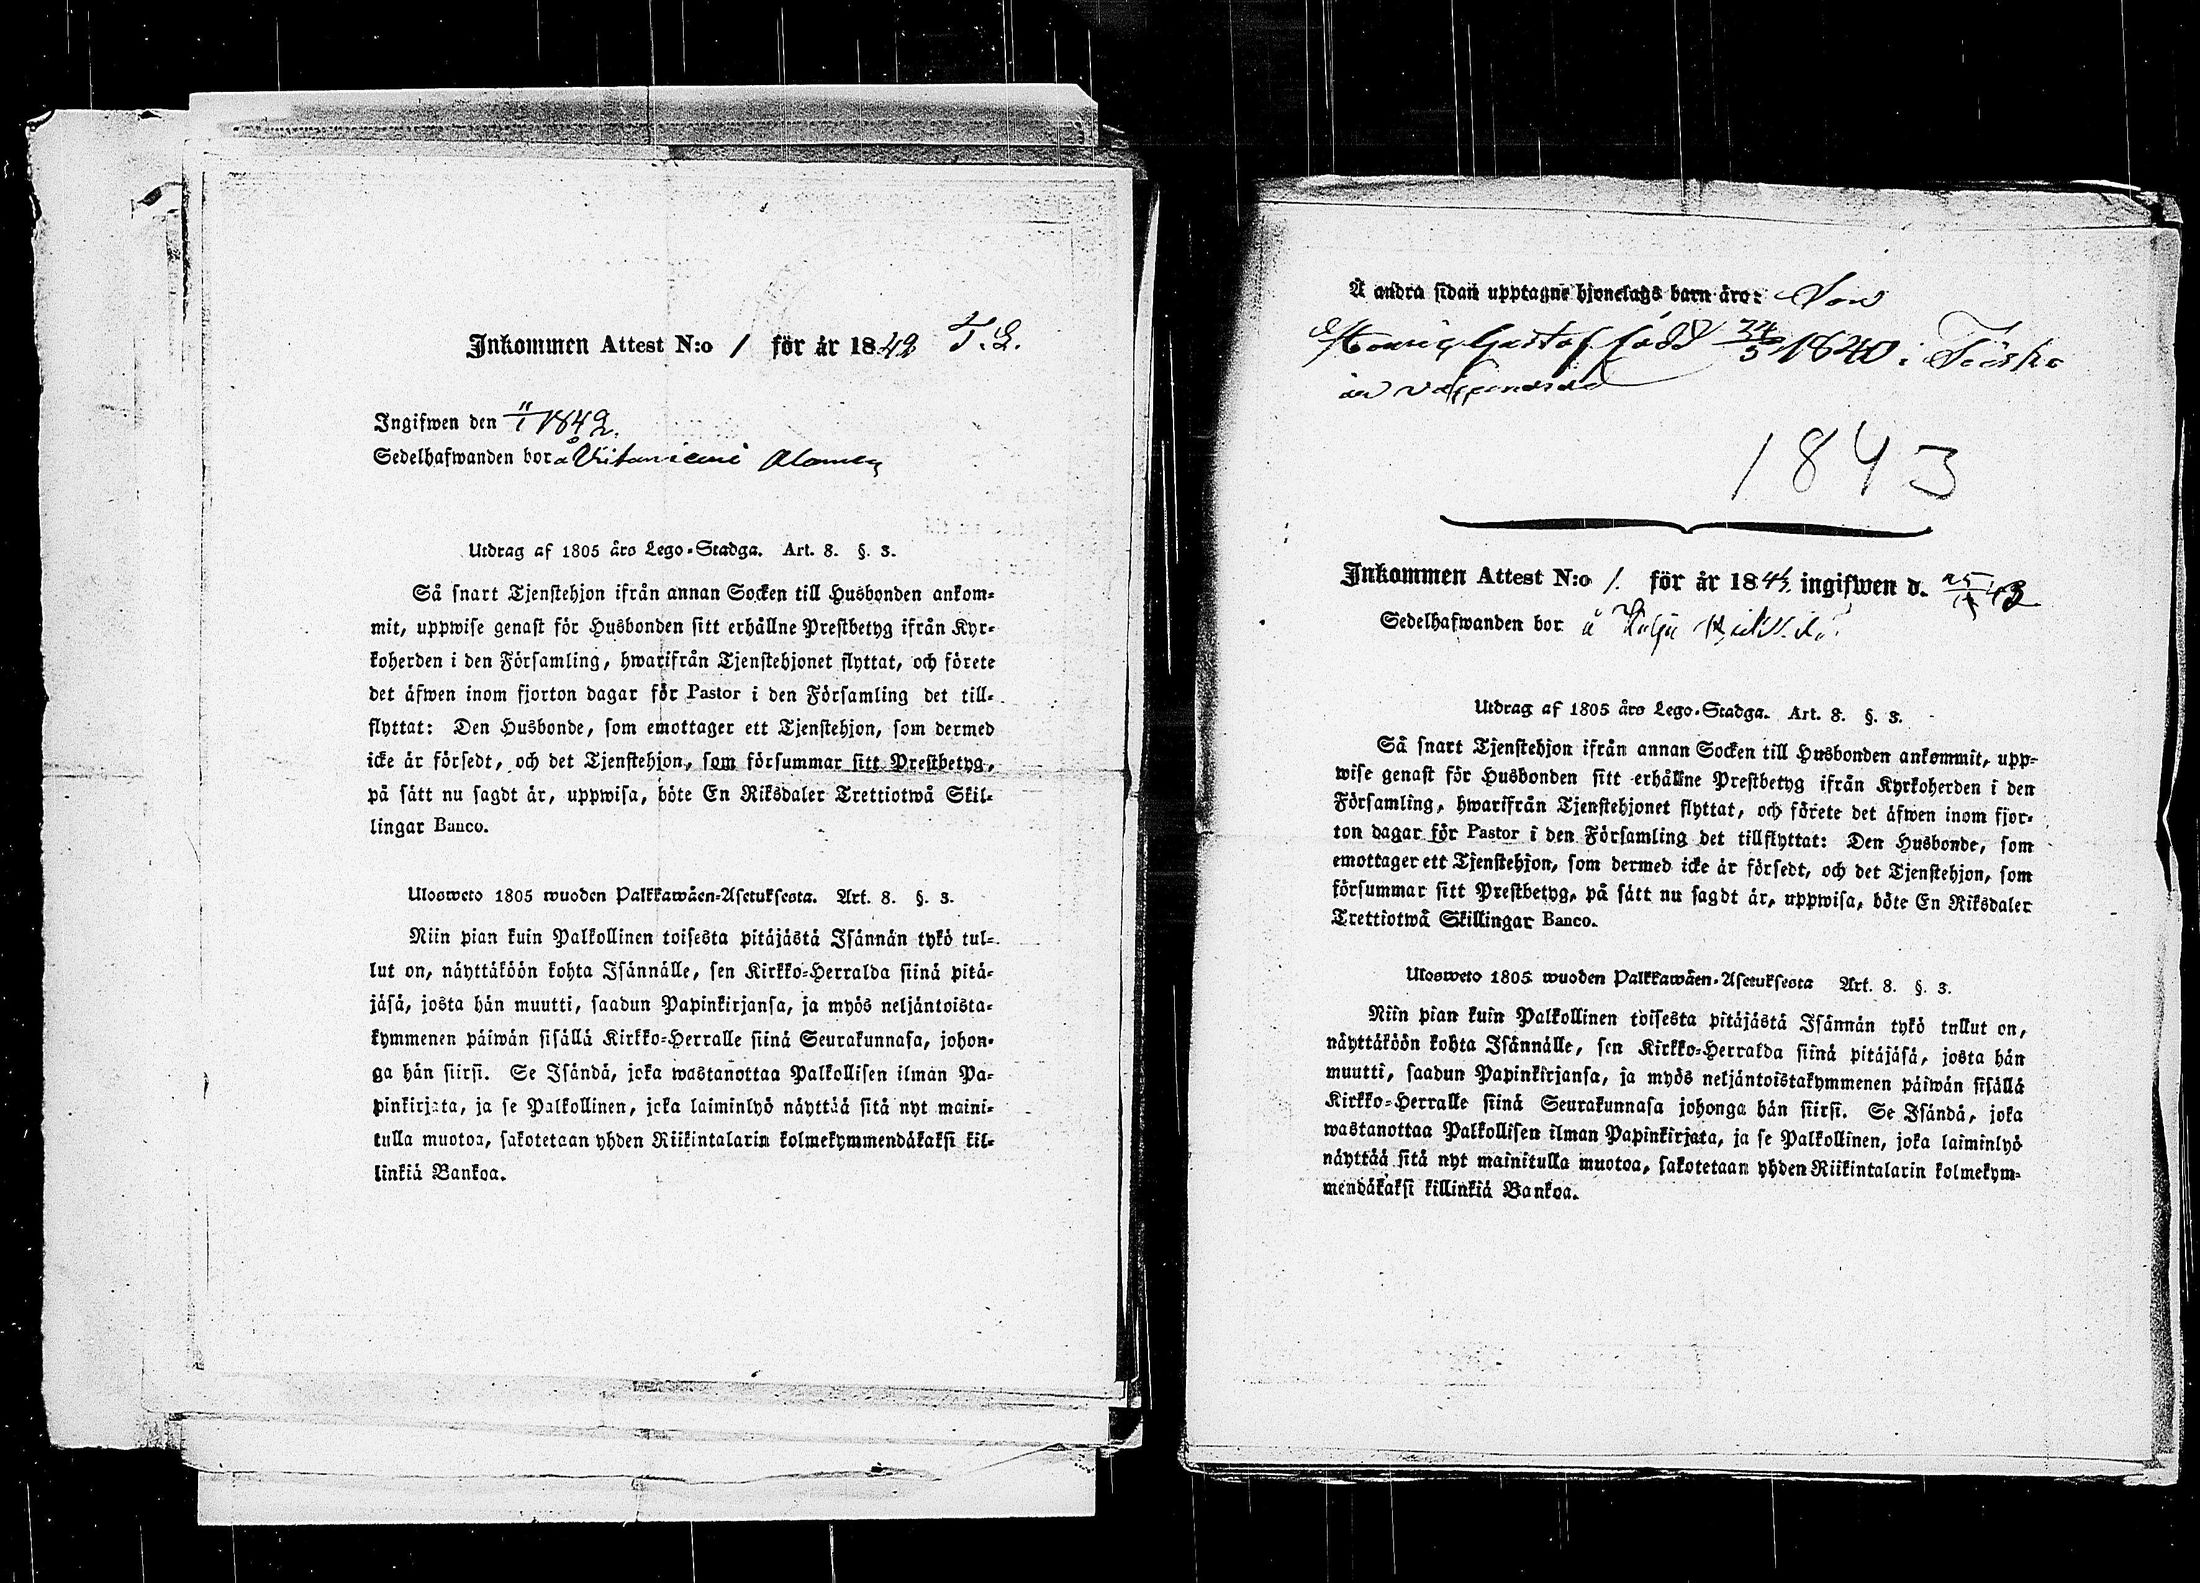 Inkommen Attest N:o 1 för år 1842 T. L.
Ingifwen den 11/1 1842.
Sedelhafwanden bor å
Utdrag af 1805 års Lego-Stadga. Art. 8. §. 3.
Så snart Tjenstehjon ifrån annan Socken till Husbonden ankom-
mit, uppwise genast för Husbonden sitt erhållne Prestbetyg ifrån Kyr-
koherden i den Församling, hwarifrån Tjenstehjonet flyttat, och förete
det äfwen inom fjorton dagar för Pastor i den Församling det till-
flyttat: Den Husbonde, som emottager ett Tjenstehjon, som dermed
icke är försedt, och det Tjenstehjon, som försummar sitt Prestbetyg,
på sätt nu sagdt är, uppwisa, böte En Riksdaler Trettiotwå Skil-
lingar Banco.
Ulosweto 1805 wuoden Palkkawäen-Asetuksesta. Art. 8. §. 3.
Niin pian kuin Palkollinen toisesta pitäjästä Isännän tykö tul-
lut on, näyttäköön kohta Isännälle, sen Kirkko-Herralda siinä pitä-
jäsä, josta hän muutti, saadun Papinkirjansa, ja myös neljäntoista-
kymmenen päiwän sisällä Kirkko-Herralle siinä Seurakunnasa, johon-
ga hän siirsi. Se Isändä, joka wastanottaa Palkollisen ilman Pa-
pinkirjata, ja se Palkollinen, joka laiminlyö näyttää sitä nyt maini-
tulla muotoa, sakotetaan yhden Riikintalarin kolmekymmendäkaksi kil-
linkiä Bankoa.
Å andra sidan upptagne hjonelags barn äro: Son
Henric Gustaf född 24/5 1840 i
är
1843
Inkommen Attest N:o 1. för år 1843. ingifwen d. 43
Sedelhafwanden bor å
Utdrag af 1805 års Lego-Stadga. Art. 8. §. 3.
Så snart Tjenstehjon ifrån annan Socken till Husbonden ankommit, upp-
wise genast för Husbonden sitt erhållne Prestbetyg ifrån Kyrkoherden i den
Församling, hwarifrån Tjenstehjonet flyttat, och förete det äfwen inom fjor-
ton dagar för Pastor i den Församling det tillflyttat: Den Husbonde, som
emottager ett Tjenstehjon, som dermed icke är försedt, och det Tjenstehjon, som
försummar sitt Prestbetyg, på sätt nu sagdt är, uppwisa, böte En Riksdaler
Trettiotwå Skillingar Banco.
Ulosweto 1805 wuoden Palkkawäen-Asetuksesta Art. 8. §. 3.
Niin pian kuin Palkollinen toisesta pitäjästä Isännän tykö tullut on,
näyttäköön kohta Isännälle, sen Kirkko-Herralda siinä pitäjäsä, josta hän
muutti, saadun Papinkirjansa, ja myös neljäntoistakymmenen päiwän sisällä
Kirkko-Herralle siinä Seurakunnasa johonga hän siirsi. Se Isändä, joka
wastanottaa Palkollisen ilman Papinkirjata, ja se Palkollinen, joka laiminlyö
näyttää sitä nyt mainitulla muotoa, sakotetaan yhden Riikintalarin kolmekym-
mendäkaksi killinkiä Bankoa.